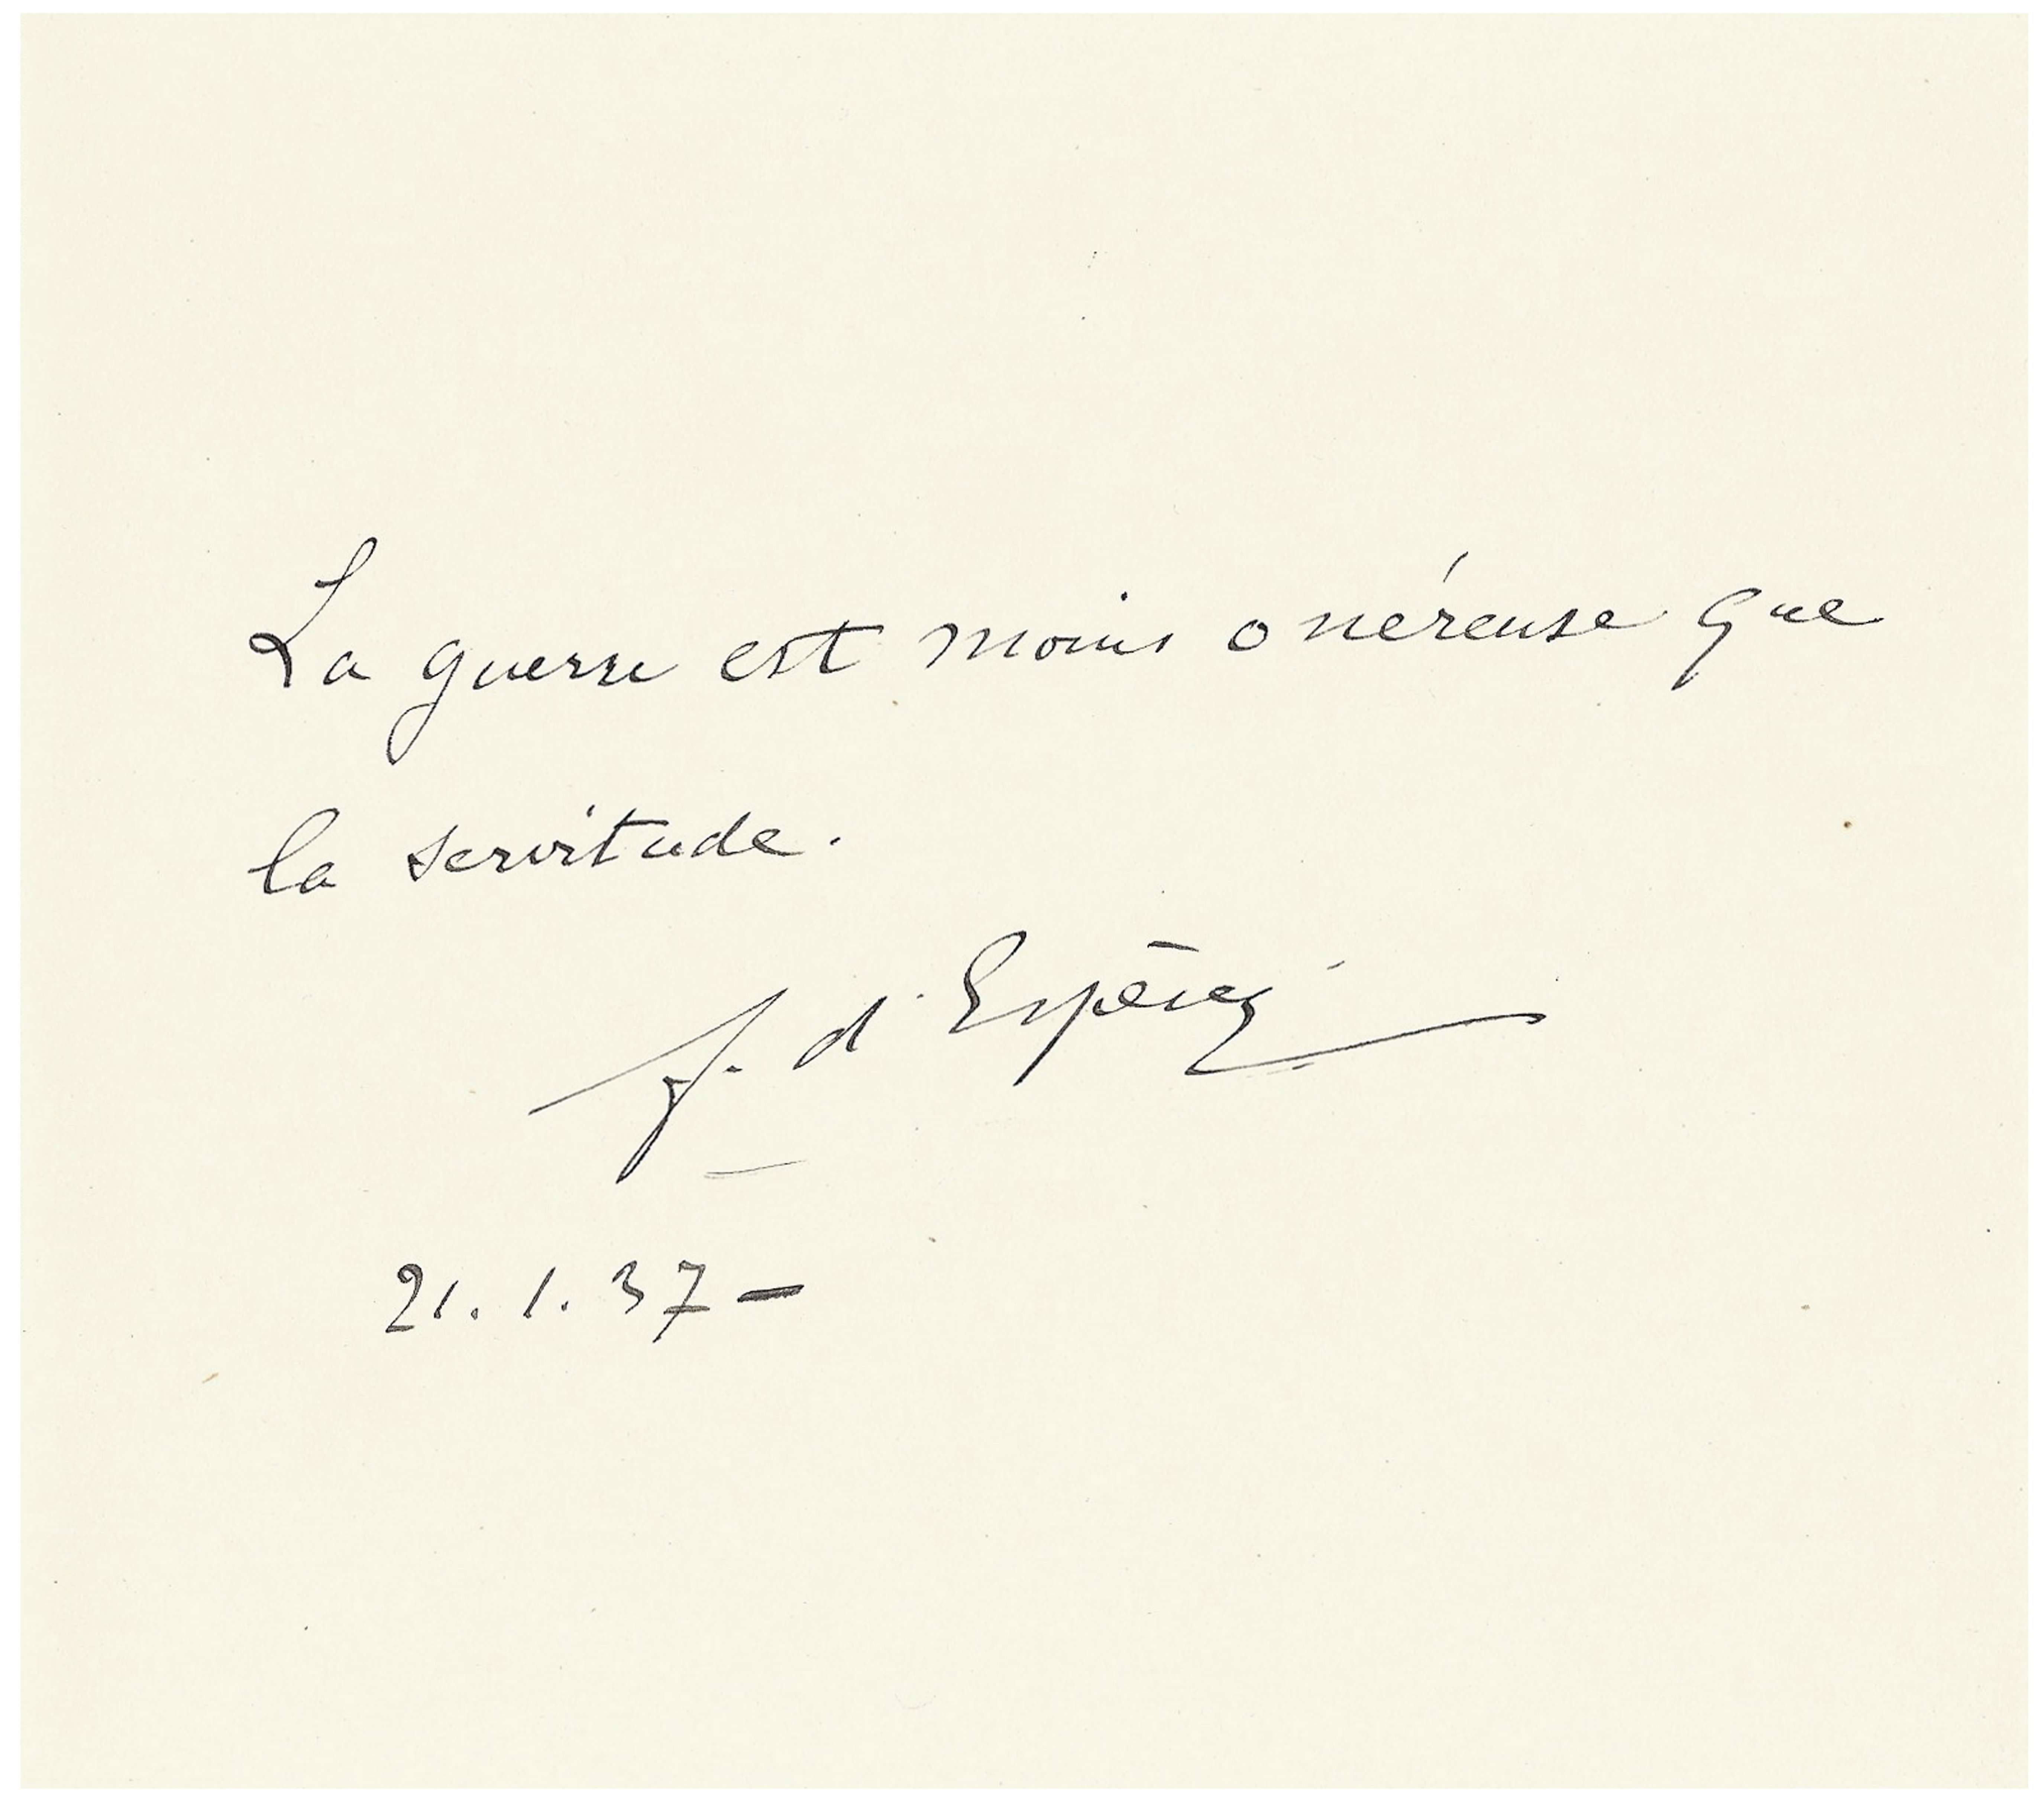 La guerre est moins onéreuse que
la servitude.
f. d'Espèrey
21.1.37-